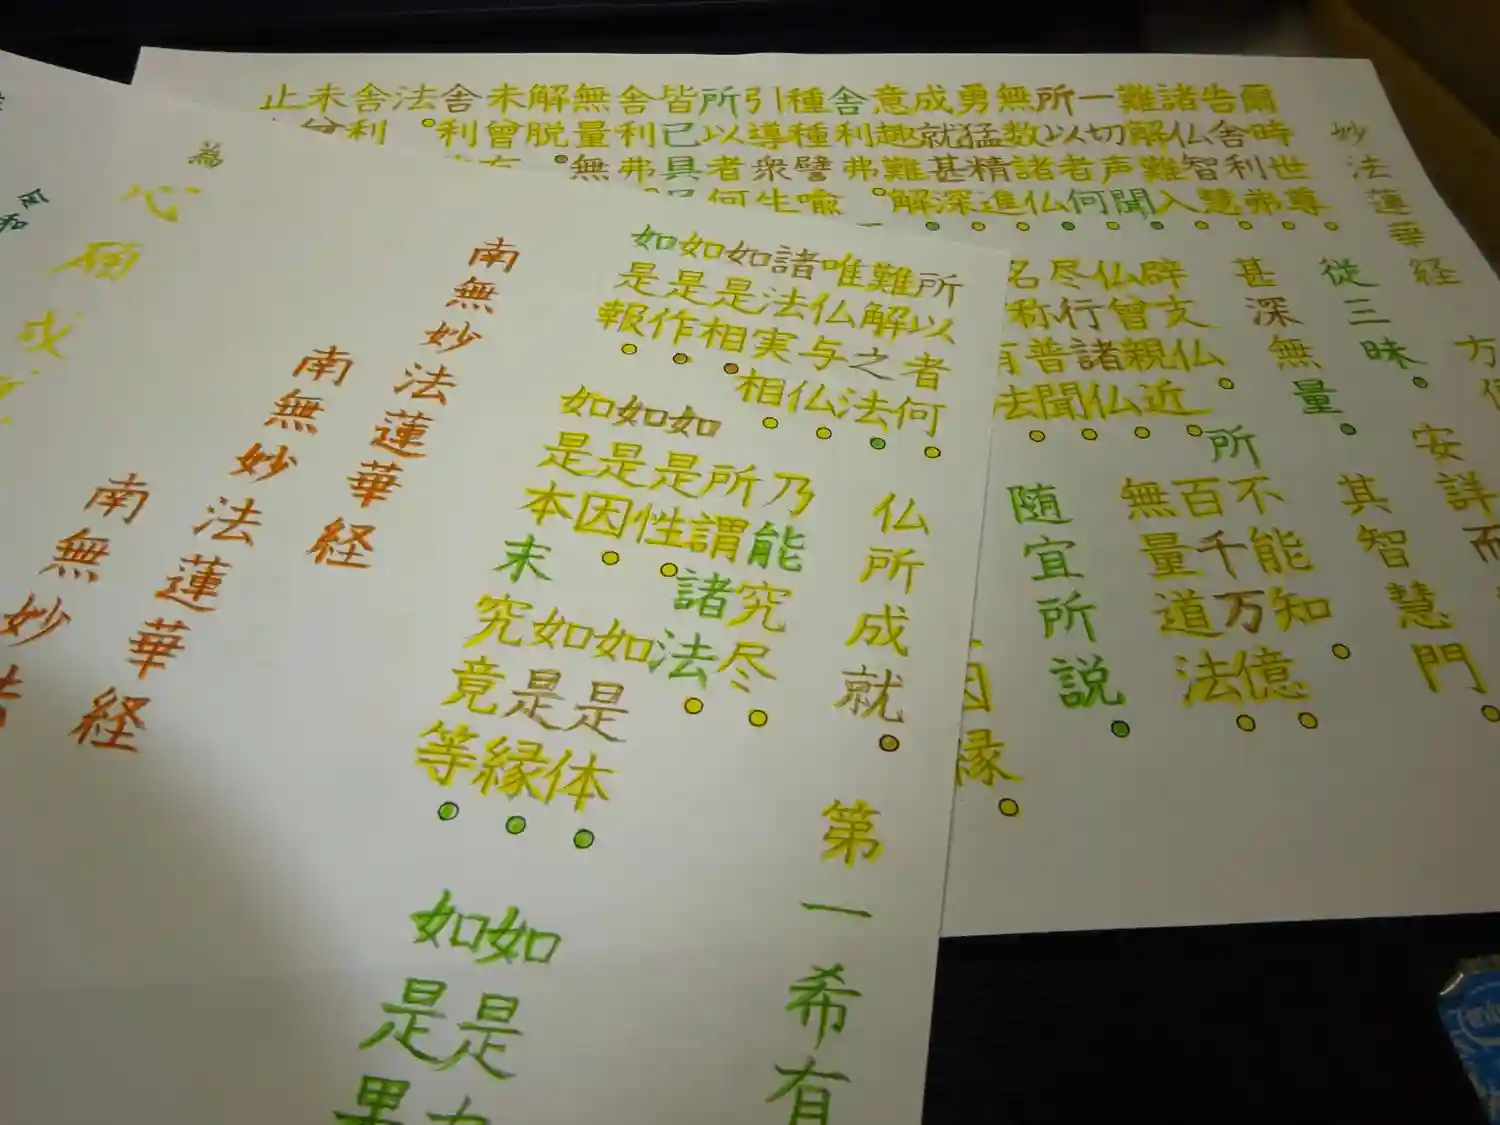 妙法蓮華経 方便
爾時世尊。従三昧。安詳而
告舎利弗。
諸仏智慧。甚深無量。其智慧門。
難解難入。
一切声聞。辟支仏。所不能知。
所以者何。仏曾親近。百千万億。
無数諸仏。尽行諸仏。無量道法。
勇猛精進。名称普聞。
成就甚深 有法。随宜所説。
意趣難解。
舎利弗
種種譬喩
引導衆生 因縁。
所以者何
皆已具
舎利弗
無量無
解脱。
未曾
舎利
法。
舎利
未
止
所以者何。仏所成就。第一希有
難解之法。
唯仏与仏。乃能究尽。
諸法実相。所謂諸法。
如是相。如是性。如是体。如是
如是作。如是因。如是縁。如是果
如是報。如是本末究竟等。
南無妙法蓮華経
南無妙法蓮華経
南無妙法蓮華経
南無妙法
為
心願成